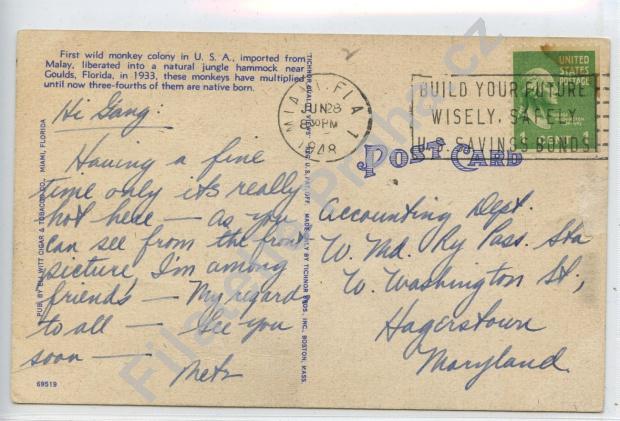 First wild monkey colony in U. S. A., imported from
Malay, liberated into a natural jungle hammock near
Goulds, Florida, in 1933, these monkeys have multiplied
until now three-fourths of them are native born.
Hi Gang:
Having a fine
time only it's really
hot here — as you
can see from the front
picture, I'm among
friends — My regard
to all — See you
soon —
Metz
69519
PUB. BY ELI WITT CIGAR & TOBACCO CO., MIAMI, FLORIDA
TICHNOR QUALITY VIEWS REG. U. S. PAT. OFF. MADE ONLY BY TICHNOR BROS., INC., BOSTON, MASS.
MIAMI, FLA. 1
JUN 28
PM
1948
BUILD YOUR FUTURE
WISELY, SAFELY
U.S. SAVINGS BONDS
UNITED
STATES
POSTAGE
1 CENT 1
POST CARD
Accounting Dept.
W. Md. Ry Pass. Sta
W. Washington St,
Hagerstown
Maryland.
Filatelie Praha cz